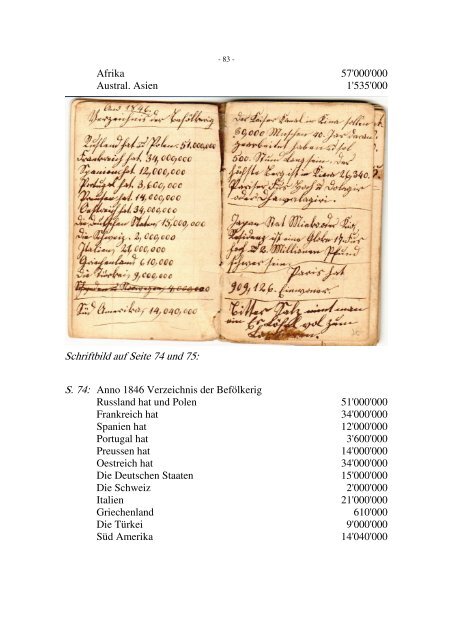 - 83 -
Afrika 57'000'000
Austral. Asien 1'535'000
Ao 1846
Verzeichnis der Befölkerig
Rußland hat u Polen 51,000,000
Frankreich hat 34,000,000
Spanien hat 12,000,000
Portugal hat 3,600,000
Preußen hat 14,000,000
Oestreich hat 34,000,000
die deutschen Staten 15,000,000
die Schweiz 2,000,000
Italien 21,000,000
Griechenland 610,000
die Türkei 9,000,000
Süd Amerika 14,040,000
der Kaiser Kanal in Kina sollen
30,000 Menschen 40 Jar daran
gearbeitet haben u sol
600 Stund lang sein der
höchste berg ist in 26,340
Pariser Fus hoch
oder
Japan hat
ist eine Gloke 17 Fus
hoch u 2 Millionen Pfund
schwer sein
Paris hat
909,126 Einwoner
Bitter Salz nimt man
ein Eslöfel vol zum
Laxieren
Schriftbild auf Seite 74 und 75:
S. 74: Anno 1846 Verzeichnis der Befölkerig
Russland hat und Polen 51'000'000
Frankreich hat 34'000'000
Spanien hat 12'000'000
Portugal hat 3'600'000
Preussen hat 14'000'000
Oestreich hat 34'000'000
Die Deutschen Staaten 15'000'000
Die Schweiz 2'000'000
Italien 21'000'000
Griechenland 610'000
Die Türkei 9'000'000
Süd Amerika 14'040'000